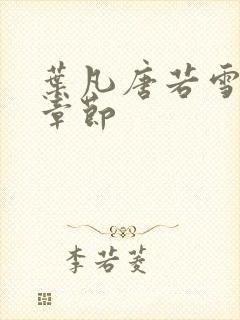 葉凡唐若雪
章節
李若菱